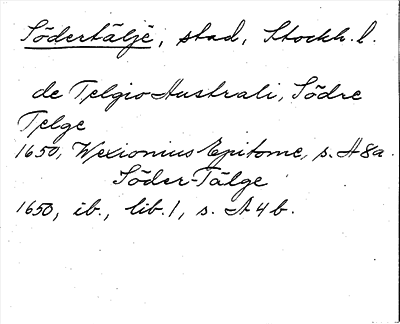 Södertälje, stad, Stockh. l.
de Telgio Australi, Södre
Telge
1650, Wexionius Epitome, s. A8a.
Söder-Tälge
1650, ib., lib. 1, s. A4b.